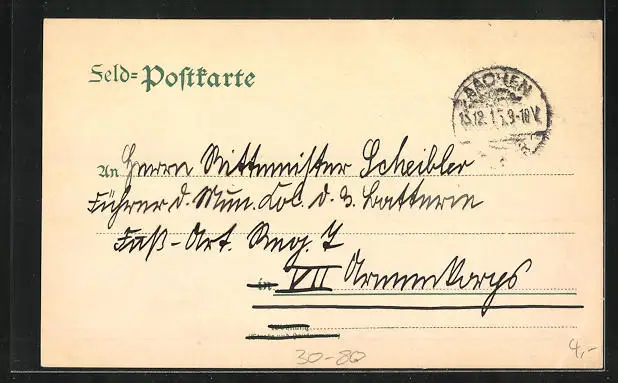 Feld-Postkarte
AACHEN
13.12.15.9-10V.
An Herrn Rittmeister Scheibler
Führer d. Mun. Kol. d. 3. Batterie
Fuß-Art. Reg. 7
in VII Armeekorps
30-80
4,-